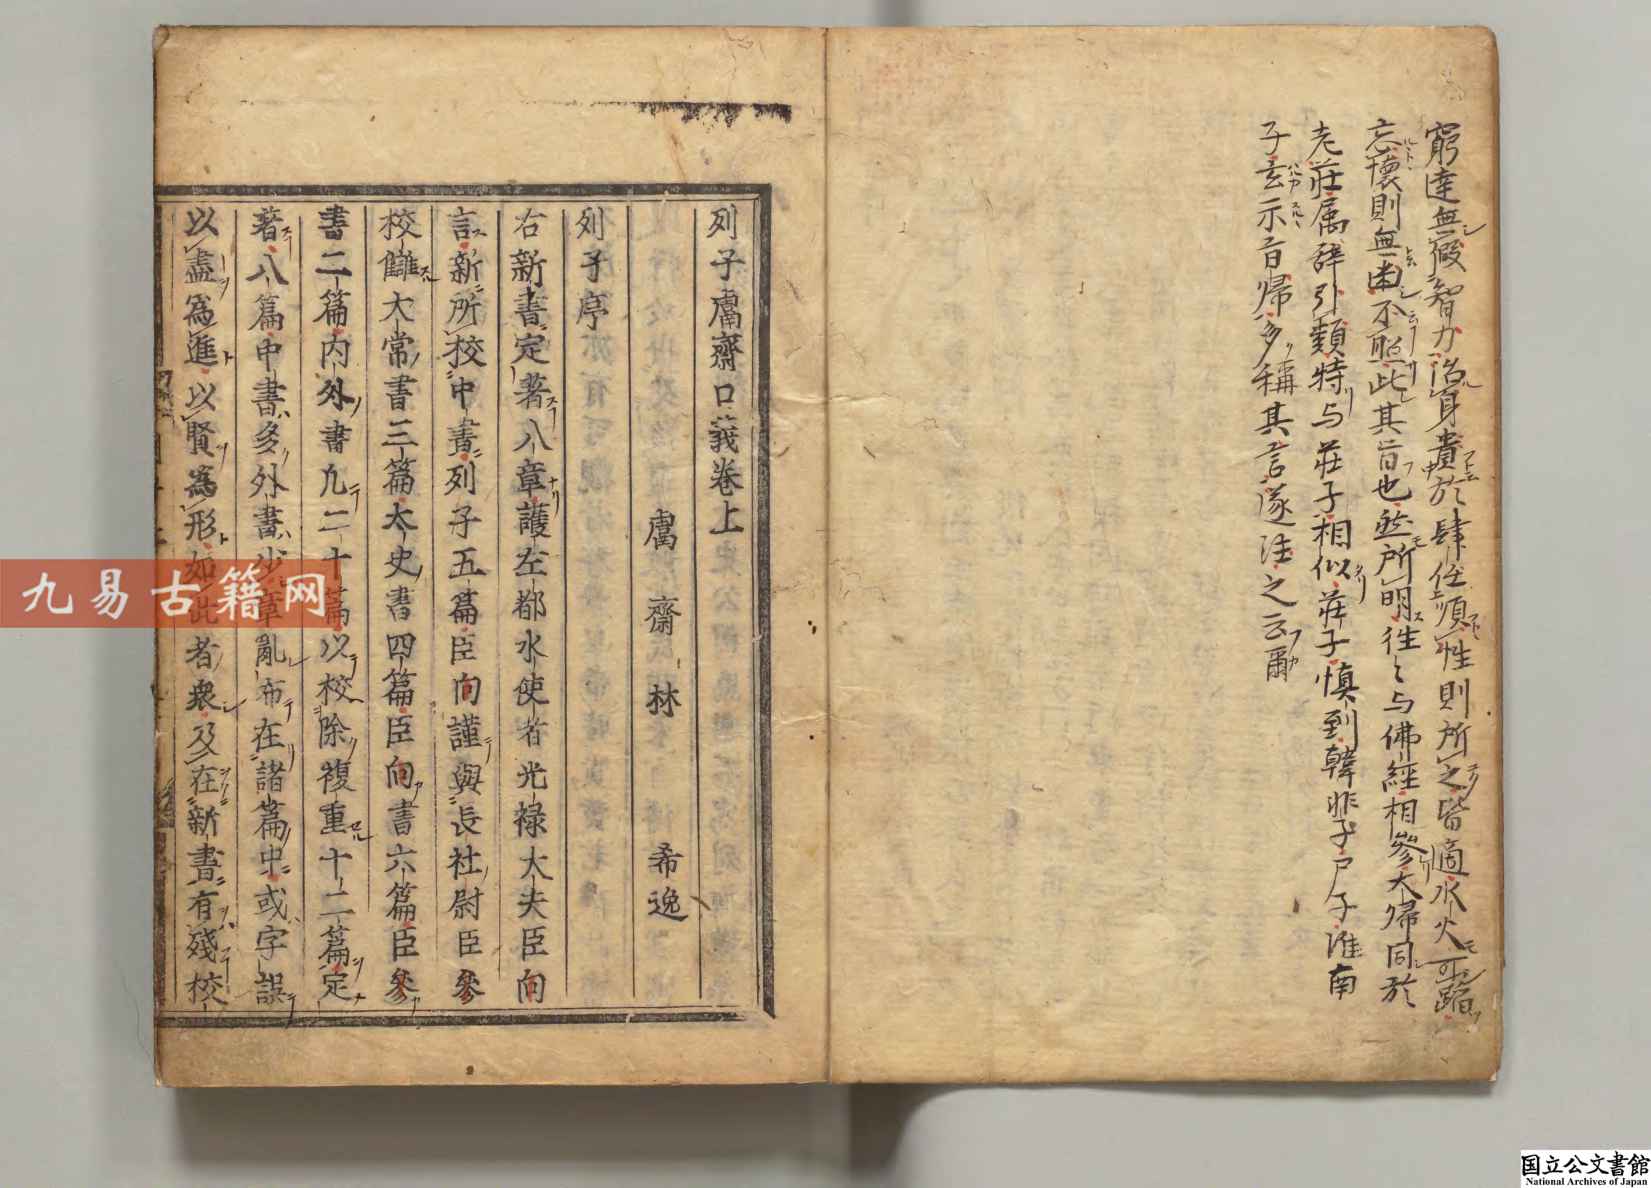 窮達無假智力治身貴於肆任順性則所之皆適水火可蹈
忘懷則無幽不照此其旨也然所明往〻与佛經相參大歸同於
老莊属辞引類特与莊子相似莊子慎到韓非子尸子淮南
子玄示旨歸多稱其言遂注之云爾
列子鬳齋口義卷上
鬳齋林希逸
列子序
右新書定著八章護左都水使者光禄大夫臣向
言新所校中書列子五篇臣向謹與長社尉臣參
校讎大常書三篇太史書四篇臣向書六篇臣參
書二篇内外書凡二十篇以校除複重十二篇定
著八篇中書多外書少章亂布在諸篇中或字誤
以盡爲進以賢爲形如此者衆及在新書有殘校
九易古籍网
国立公文書館
National Archives of Japan